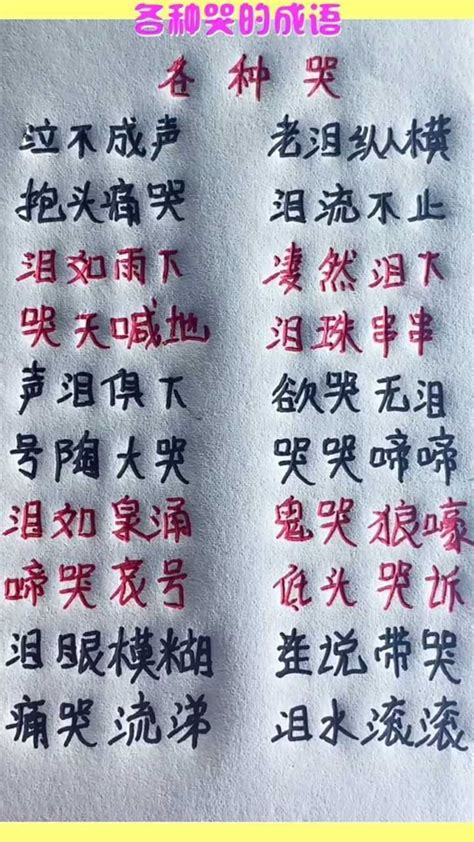 各种哭的成语
各种哭
泣不成声 老泪纵横
抱头痛哭 泪流不止
泪如雨下 凄然泪下
哭天喊地 泪珠串串
声泪俱下 欲哭无泪
号陶大哭 哭哭啼啼
泪如泉涌 鬼哭狼嚎
啼哭哀号 低头哭诉
泪眼模糊 连说带哭
痛哭流涕 泪水滚滚